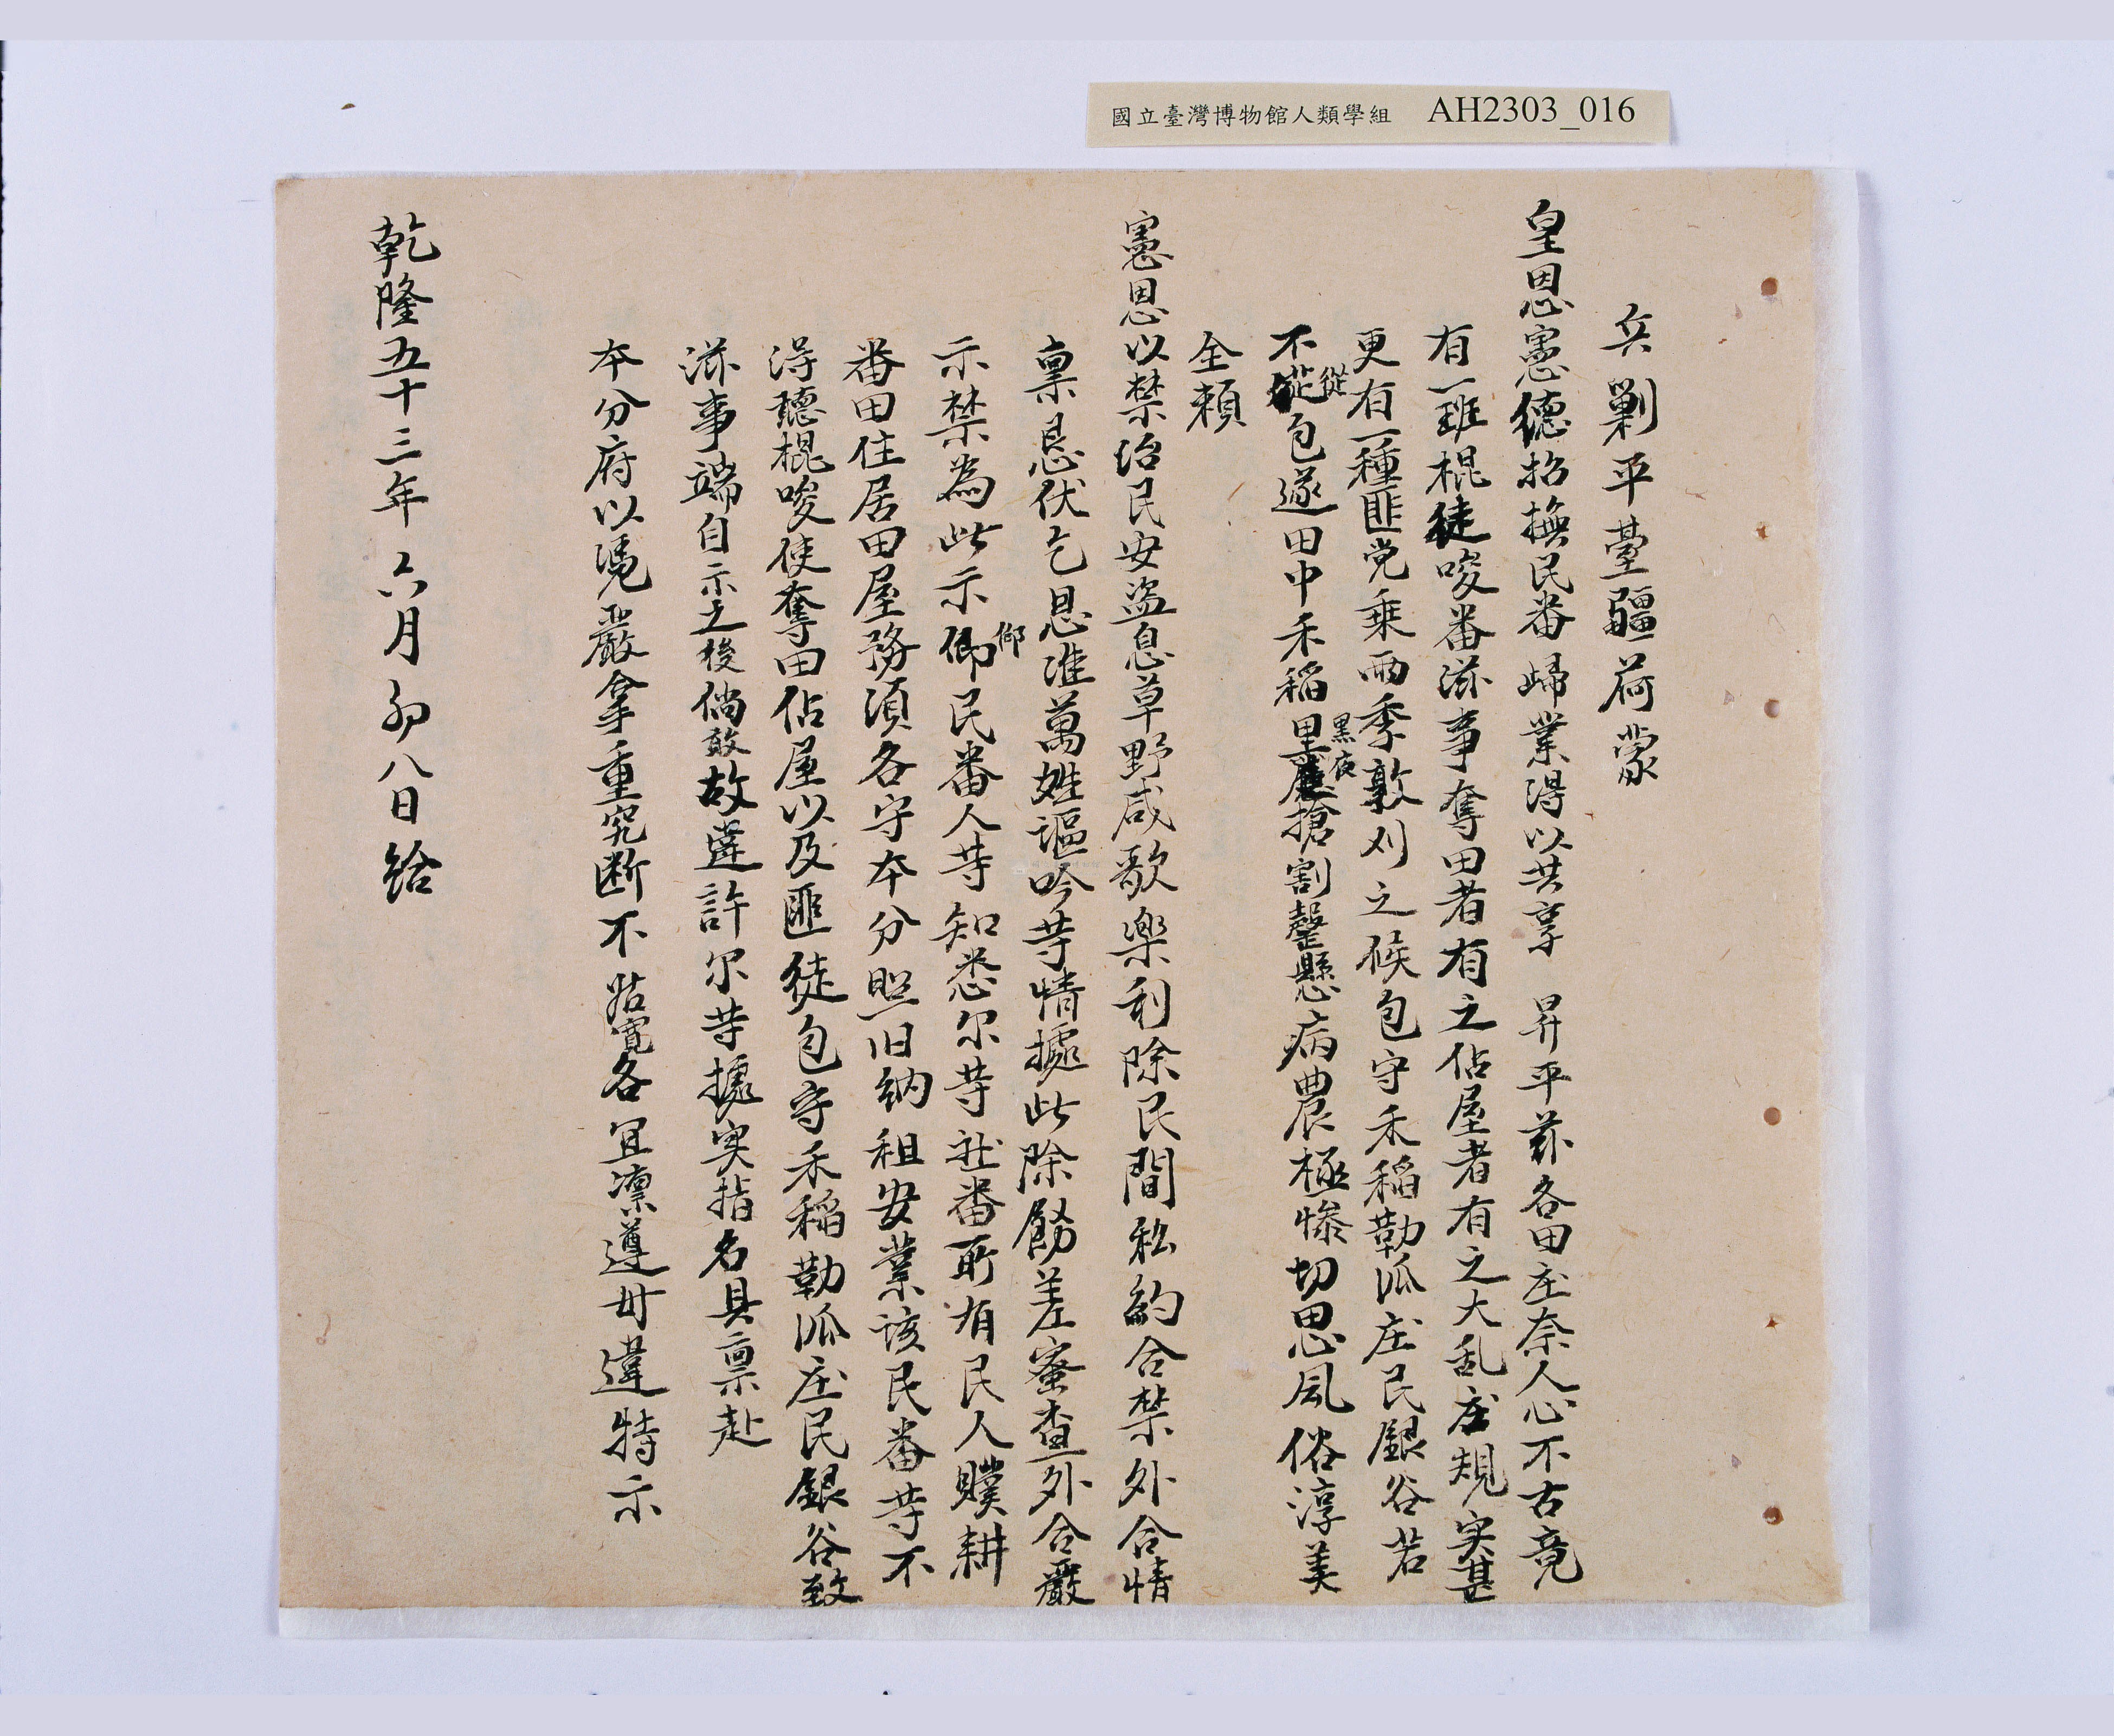 國立臺灣博物館人類學組 AH2303_016
兵剿平臺疆荷蒙
皇恩憲德招撫民番歸業得以共享 昇平茲各田庄奈人心不古竟
有一班棍徒唆番滋事奪田者有之佔屋者有之大乱庄規实甚
更有一種匪党乗両季敦刈之候包守禾稻勒派庄民銀谷若
不從從包遂田中禾稻黑夜黑夜搶割罄懸病農極惨切思風俗淳美
全賴
憲恩以禁治民安盜息草野咸歌樂利除民間私約合禁外合情
稟恳伏乞恩准萬姓謳吟等情據此除飭差密查外合嚴
示禁為此示仰仰民番人等知悉尔等社番所有民人贌耕
番田住居田屋務須各守本分照旧納租安業該民番等不
得聽棍唆使奪田佔屋以及匪徒包守禾稻勒派庄民銀谷致
滋事端自示之後倘敢故違許尔等據实指名具稟赴
本分府以凭嚴拿重究断不姑寬各宜凛遵毋違特示
乾隆五十三年六月初八日給